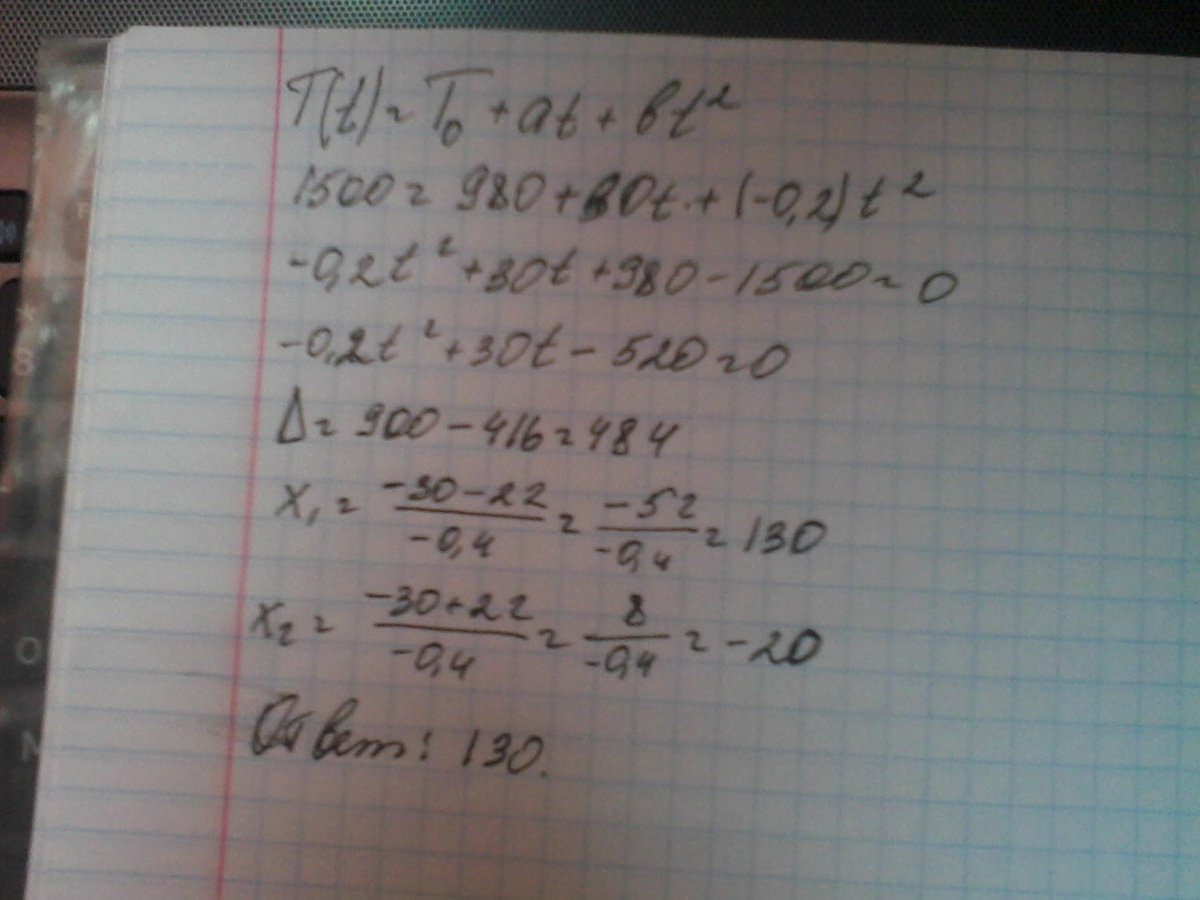 T(t) = T₀ + at + bt²
1500 = 980 + 30t + (-0,2) t²
-0,2t² + 30t + 980 - 1500 = 0
-0,2t² + 30t - 520 = 0
Δ = 900 - 416 = 484
x₁ = (-30-22)/(-0,4) = (-52)/(-0,4) = 130
x₂ = (-30+22)/(-0,4) = 8/(-0,4) = -20
Ответ: 130.